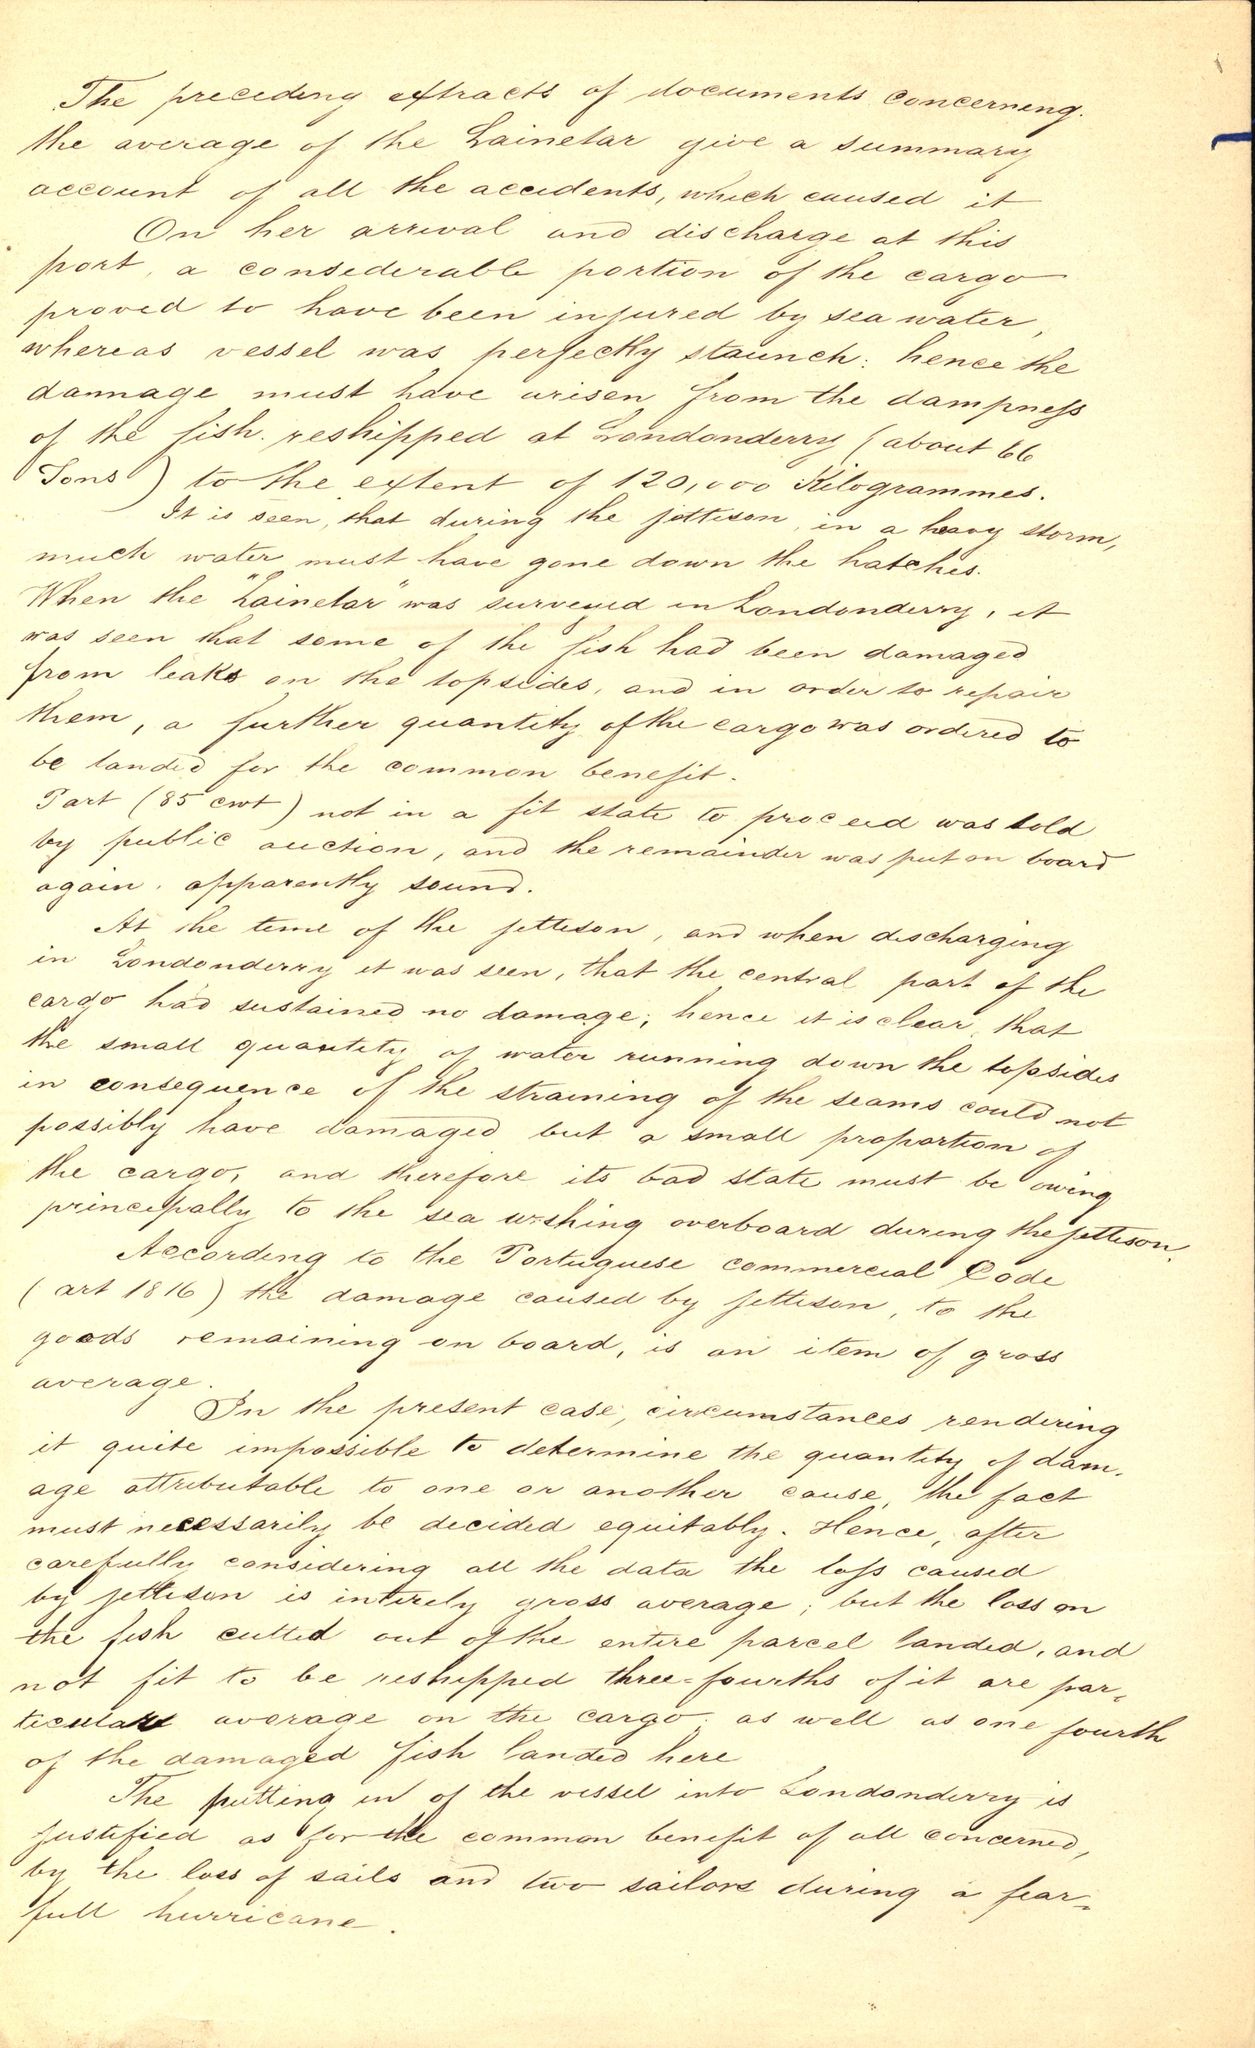 The preceding extracts of documents concerning
the average of the Lainetar give a summary
account of all the accidents, which caused it
On her arrival and discharge at this
port, a considerable portion of the cargo
proved to have been injured by sea water,
whereas vessel was perfectly staunch: hence the
damage must have arisen from the dampness
of the fish reshipped at Londonderry (about 66
Tons) to the extent of 120,000 Kilogrammes.
It is seen, that during the jettison, in a heavy storm,
much water must have gone down the hatches.
When the "Lainetar" was surveyed in Londonderry, it
was seen that some of the fish had been damaged
from leaks on the topsides, and in order to repair
them, a further quantity of the cargo was ordered to
be landed for the common benefit.
Part (85 cwt) not in a fit state to proceed was sold
by public auction, and the remainder was put on board
again, apparently sound.
At the time of the jettison, and when discharging
in Londonderry it was seen, that the central part of the
cargo had sustained no damage; hence it is clear, that
the small quantity of water running down the topsides
in consequence of the straining of the seams could not
possibly have damaged but a small proportion of
the cargo, and therefore its bad state must be owing
principally to the sea washing overboard during the jettison.
According to the Portuguese commercial Code
(art 1816) the damage caused by jettison, to the
goods remaining on board, is an item of gross
average.
In the present case, circumstances rendering
it quite impossible to determine the quantity of dam-
age attributable to one or another cause, the fact
must necessarily be decided equitably. Hence, after
carefully considering all the data the loss caused
by jettison is intirely gross average; but the loss on
the fish culled out of the entire parcel landed, and
not fit to be reshipped three-fourths of it are par-
ticular average on the cargo, as well as one fourth
of the damaged fish landed here
The putting in of the vessel into Londonderry is
justified as for the common benefit of all concerned,
by the loss of sails and two sailors during a fear-
full hurricane.